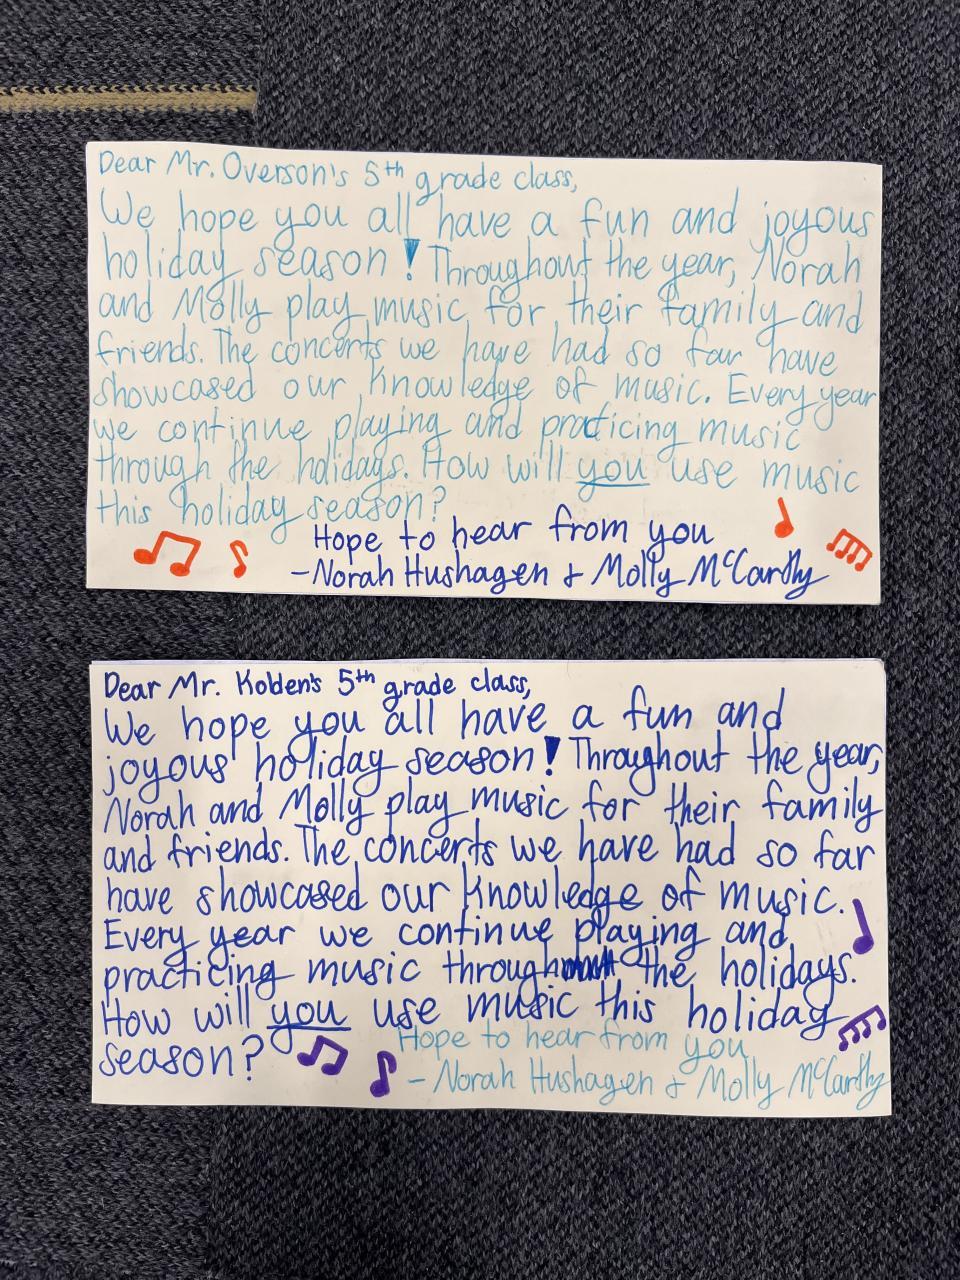 Dear Mr. Overson's 5th grade class,
We hope you all have a fun and joyous
holiday season! Throughout the year, Norah
and Molly play music for their family and
friends. The concerts we have had so far have
showcased our knowledge of music. Every year
we continue playing and practicing music
through the holidays. How will you use music
this holiday season?
Hope to hear from you
-Norah Hushagen & Molly McCarthy
Dear Mr. Kolden's 5th grade class,
We hope you all have a fun and
joyous holiday season! Throughout the year,
Norah and Molly play music for their family
and friends. The concerts we have had so far
have showcased our knowledge of music.
Every year we continue playing and
practicing music through the holidays.
How will you use music this holiday
season?
Hope to hear from you
- Norah Hushagen & Molly McCarthy